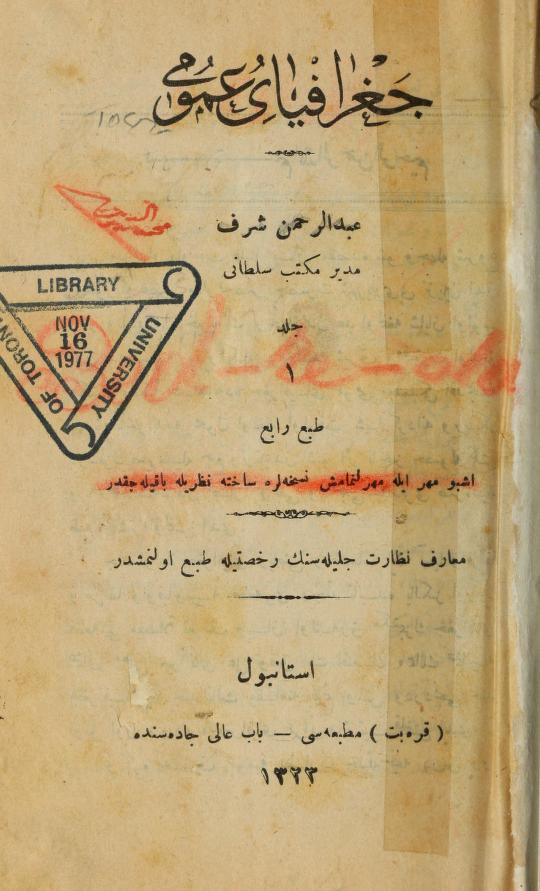 جغرافیای عمومی
عبدالرحمن شرف
مدیر مکتب سلطانی
جلد
١
طبع رابع
اشبو مهر ایله مهرلنمامش نسخه‌لره ساخته نظریله باقیله‌جقدر
معارف نظارت جلیله‌سنك رخصتیله طبع اولنمشدر
استانبول
( قره‌بت ) مطبعه‌سی — باب عالی جاده‌سنده
١٣٢٣
LIBRARY
NOV
16
1977
UNIVERSITY
OF TORONTO